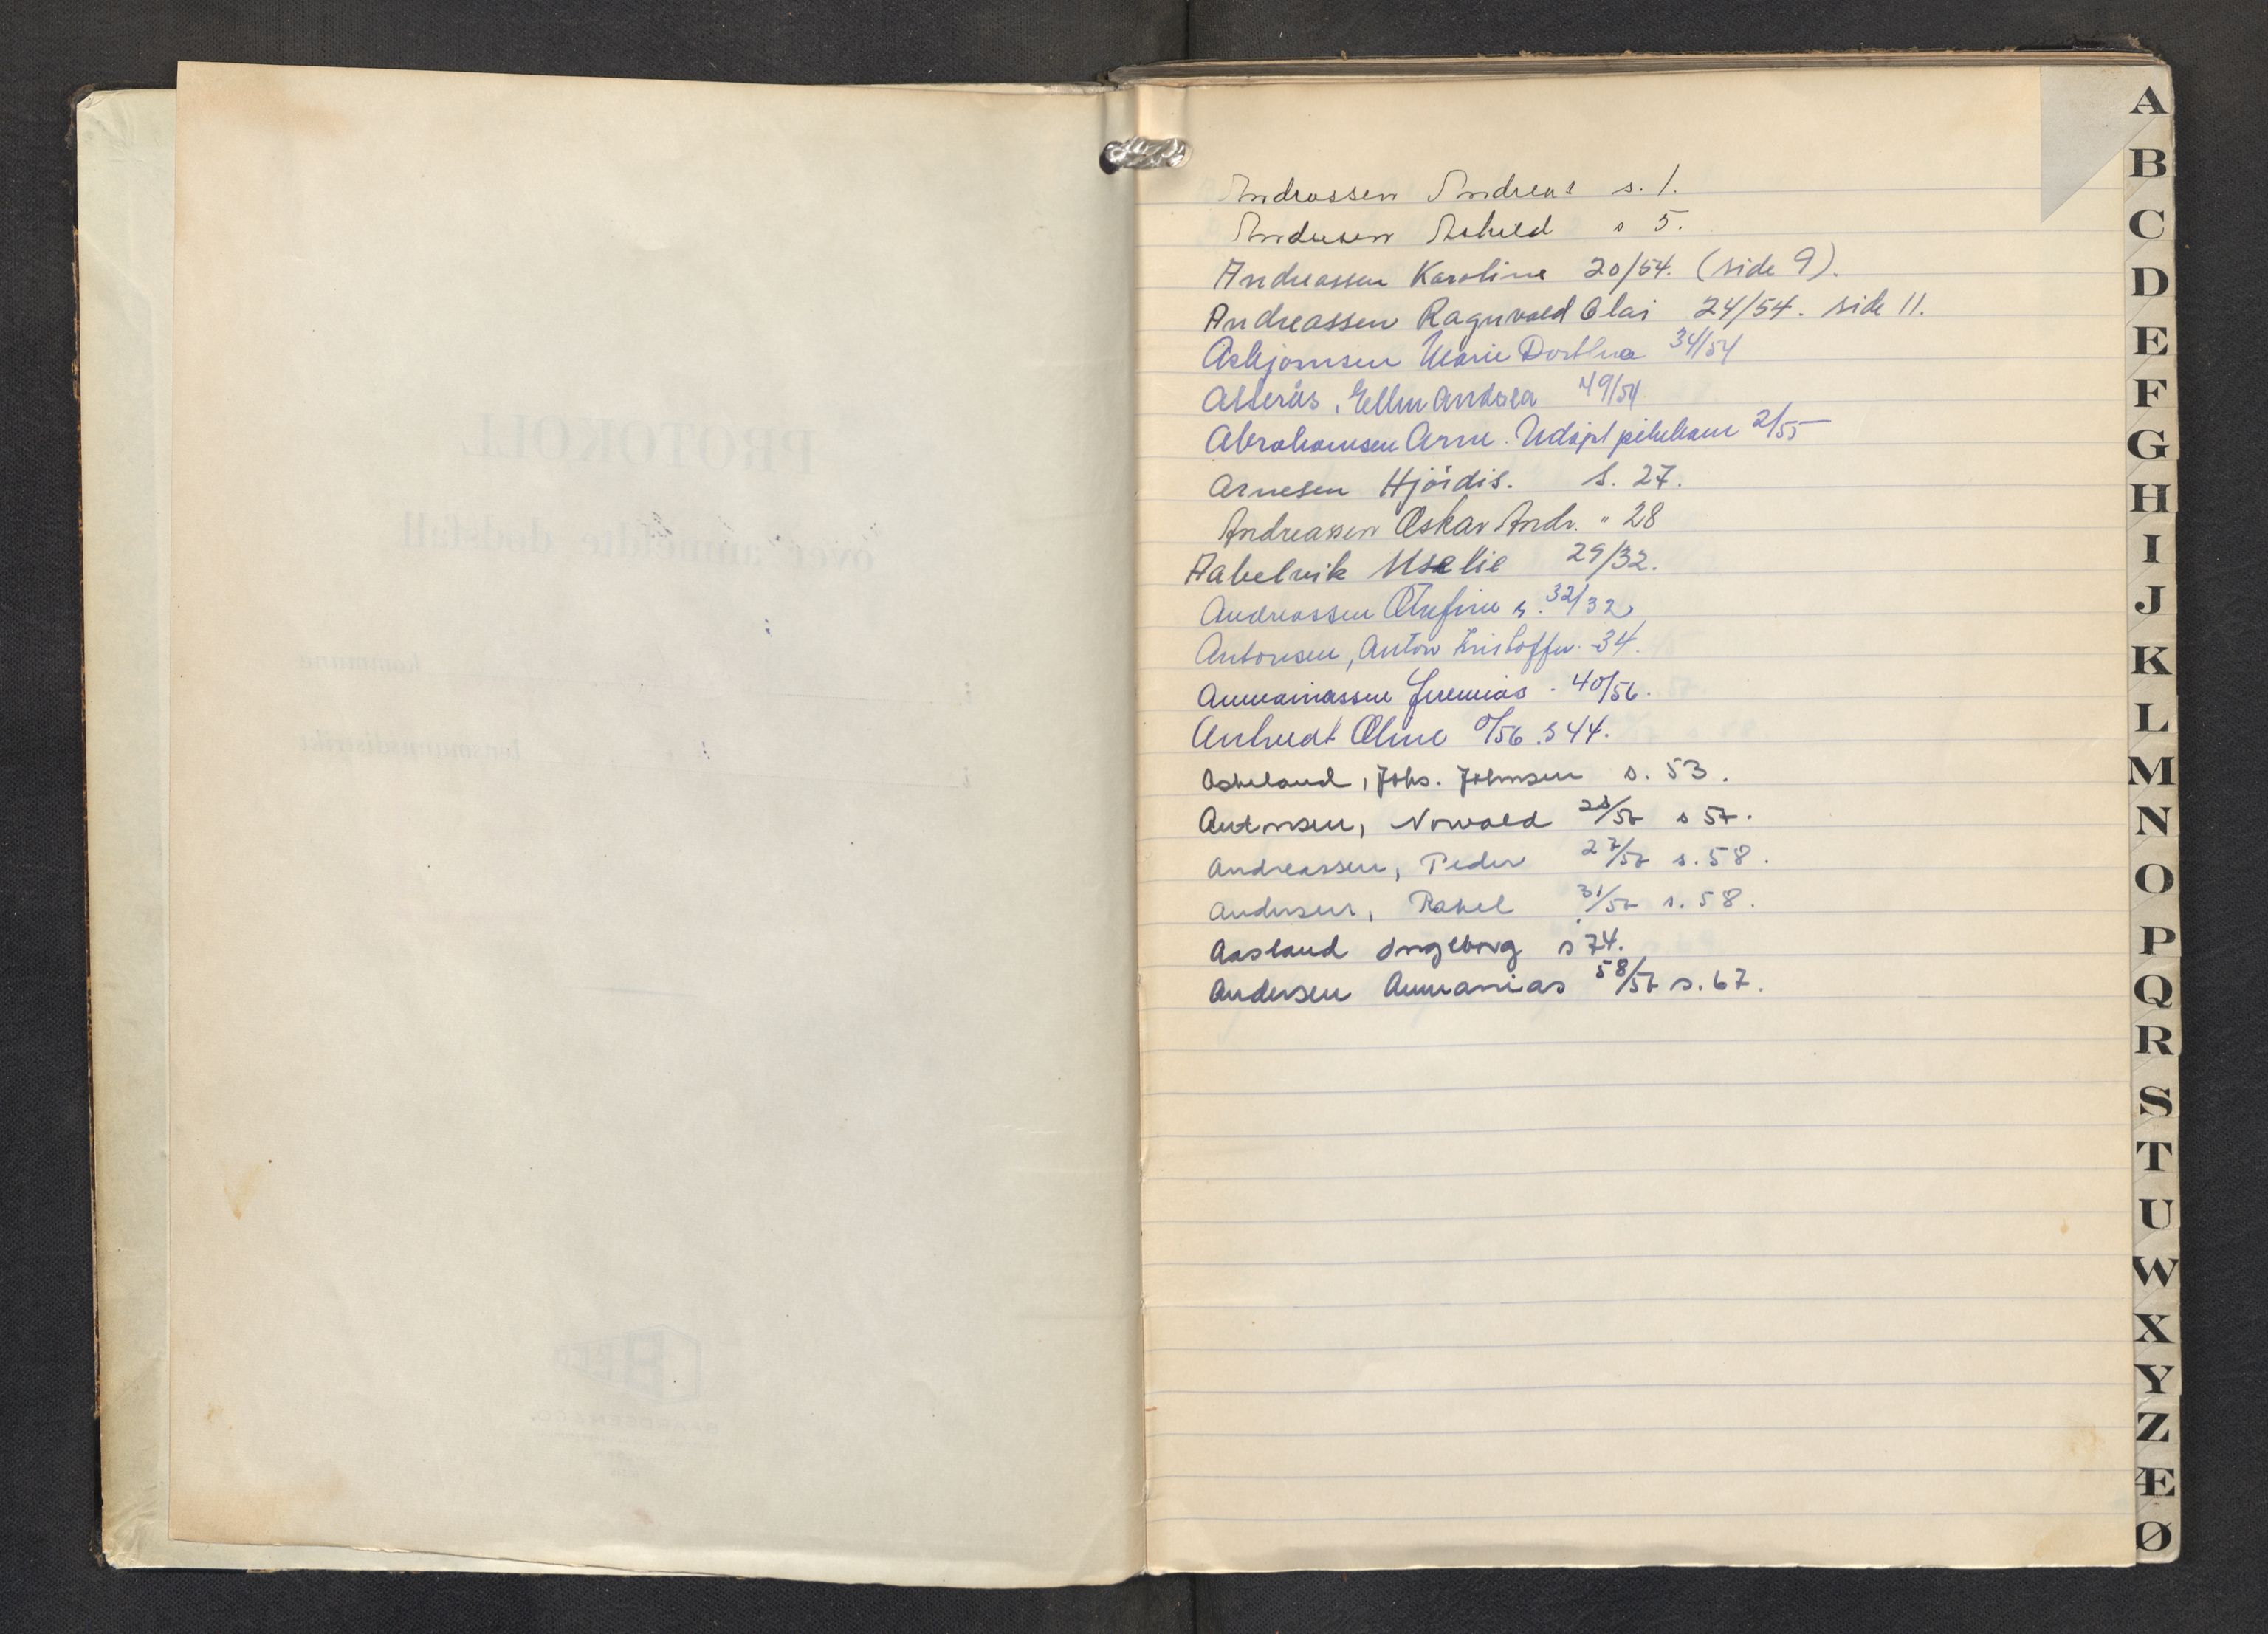 PROTOKOLL
over anmeldte dødsfall
i kommune
i lensmannsdistrikt
Andreassen Andreas s. 1.
Andersen s 5.
Andreassen Karoline 20/54. (side 9).
Andreassen Ragnvald Olai 24/54. side 11.
Asbjørnsen Marie 34/54
Andrea 49/54
Abrahamsen Arne. 2/55
Arnesen Hjördis. S. 27.
Andreassen Oskar Andr. " 28
29/32.
Andreassen s. 32/32
Antonsen, Anton Kristoffer - 34.
Jeremias - 40/56.
Oline 0/56 . s 44.
Askeland, Johs. Johnsen s. 53.
Antonsen, Norvald 23/57 s 57.
Andreassen, Peder 27/57 s. 58.
Andersen, Rakel 31/57 s. 58.
Aasland Ingeborg s 74.
Andersen Annanias 58/57 s. 67.
A
B
C
D
E
F
G
H
I
J
K
L
M
N
O
P
Q
R
S
T
U
W
X
Y
Z
Æ
Ø